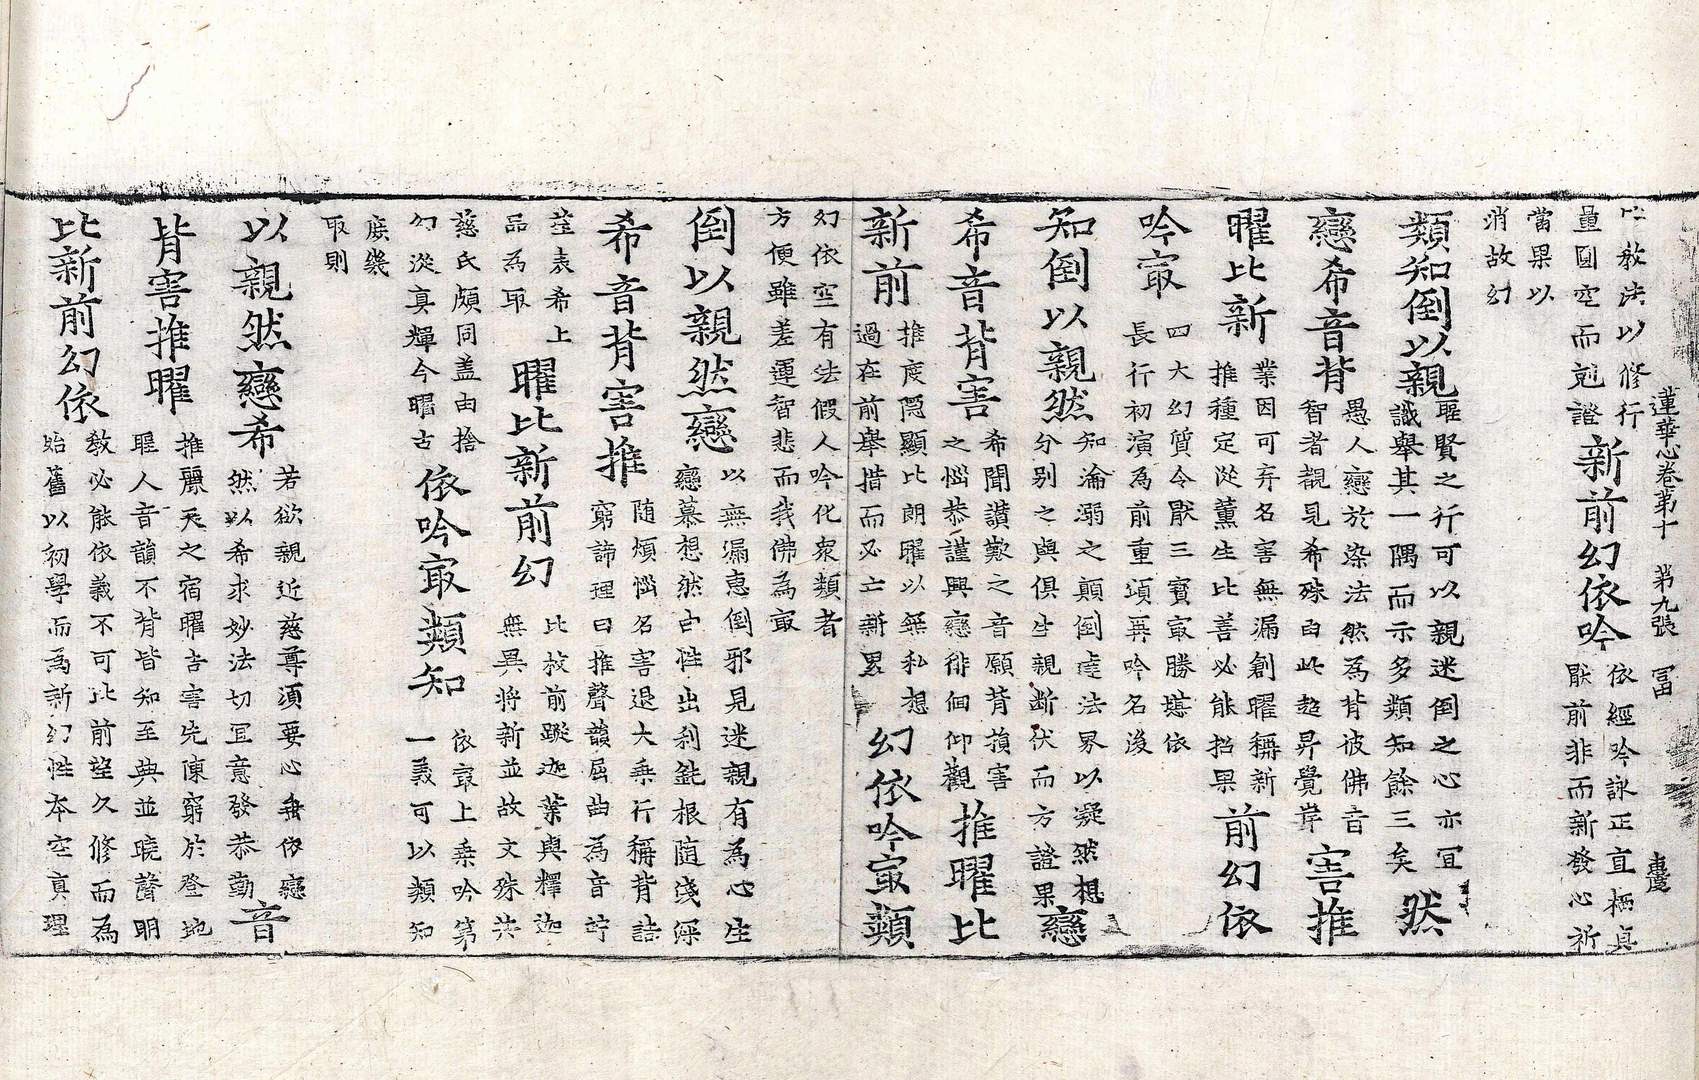 蓮華心卷第十　第九張　冨　惠度
以教法以修行
量圓空而剋證
新前幻依吟
依經吟詠正直極真
猒前非而新發心祈
當果以
消故幻
類知倒以親
聖賢之行可以親迷倒之心亦冝
識舉其一隅而示多類知餘三矣
然
戀希音背
愚人戀於染法然為背彼佛音
智者觀見希殊因此超昇覺岸
害推
曜比新
業因可弃名害無漏創曜稱新
推種定從薰生比善必能招果
前幻依
吟㝡
四大幻質令猒三寶㝡勝堪依
長行初演為前重頌再吟名後
知倒以親然
知淪溺之顛倒達法界以凝然想
分別之與俱生親斷伏而方證果
戀
希音背害
希聞讃歎之音願背損害
之惱恭謹興戀徘徊仰觀
推曜比
新前
推度隠顯比朗曜以無私想
過在前舉措而必亡新累
幻依吟㝡類
幻依空有法假人吟化衆類者
方便雖差運智悲而我佛為㝡
倒以親然戀
以無漏惠倒邪見迷親有為心生
戀慕想然古性出利鈍根隨淺深
希音背害推
随煩惱名害退大乗行稱背詰
窮諦理曰推聲韻屈曲為音訏
荃表希上
品為取
曜比新前幻
比校前蹤迦葉與釋迦
無異将新並故文殊共
慈氏頗同盖由捨
幻從真輝今曜古
依吟㝡類知
依㝡上乗吟第
一義可以類知
庶幾
取則
以親然戀希
若欲親近慈尊須要心無傍戀
然以希求妙法切冝意發恭勤
音
背害推曜
推麗天之宿曜吉害先陳窮於登地
聖人音韻不背皆知至典並曉聲明
比新前幻依
教必能依義不可比前望久修而為
始舊以初學而為新幻性本空真理